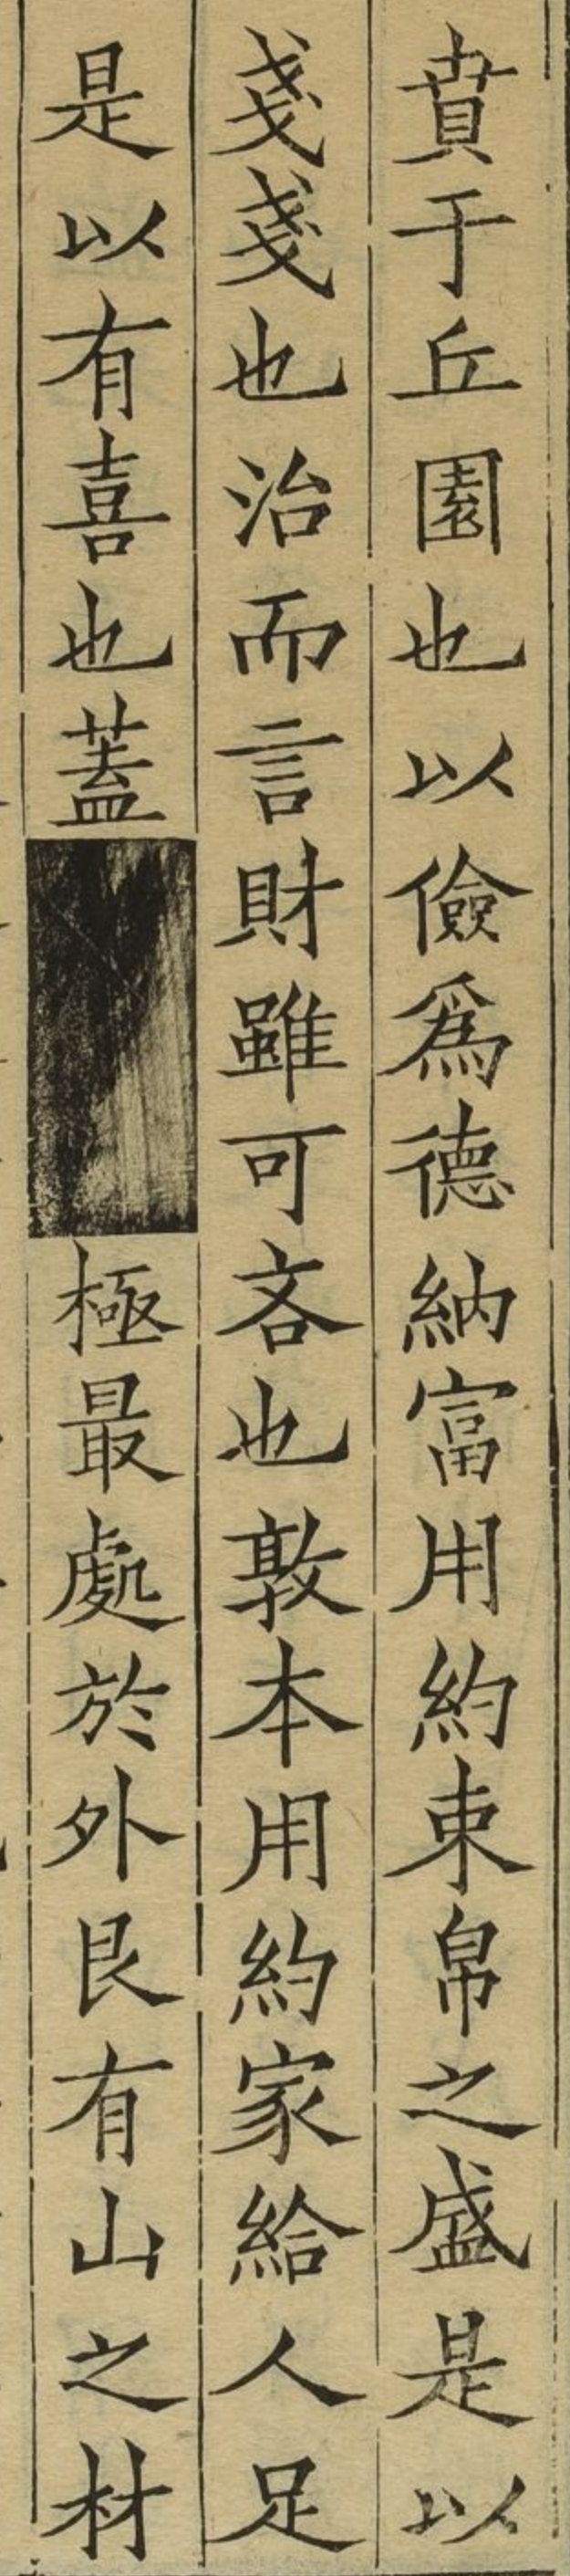 賁于丘園也以儉爲德納富用約束帛之盛是以
戔戔也治而言財雖可吝也敦本用約家給人足
是以有喜也蓋極最處於外艮有山之材